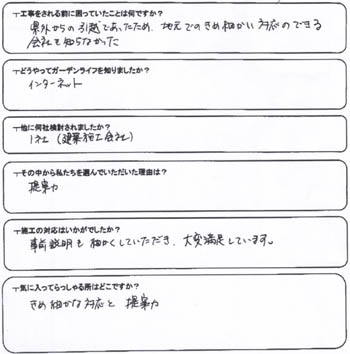 工事をされる前に困っていたことは何ですか?
県外からの引越であったため、地元でのきめ細かい対応のできる
会社を知らなかった
どうやってガーデンライフを知りましたか?
インターネット
他に何社検討されましたか?
1社(建築施工会社)
その中から私たちを選んでいただいた理由は?
提案力
施工の対応はいかがでしたか?
事前説明も細かくしていただき、大変満足しています。
気に入ってらっしゃる所はどこですか?
きめ細かな対応と提案力